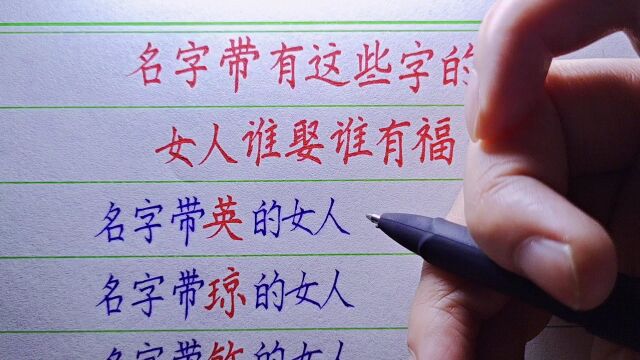 名字带有这些字的
女人谁娶谁有福
名字带英的女人
名字带琼的女人
名字带敏的女人